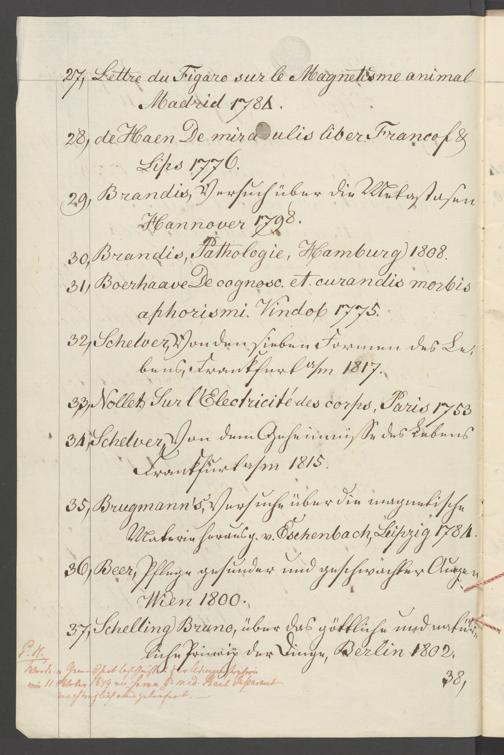 27, Lettre du Figaro sur le Magnetisme animal
Madrid 1784.
28, de Haen De miraculis liber. Francof &
Lips 1776.
29, Brandis, Versuch über die Metastasen
Hannover 1798.
30, Brandis, Pathologie, Hamburg 1808.
31, Boerhaave De cognosc. et. curandis morbis
aphorismi. Vindob 1775.
32, Schelver, Von den sieben Formen des Le-
bens, Frankfurt a/m 1817.
33, Nollet, Sur l'Electricité des corps, Paris 1753
34, Schelver, Von dem Geheimnisse des Lebens
Frankfurt a/m 1815.
35, Brugmann's, Versuche über die magnetische
Materie herausg. v. Eschenbach, Leipzig 1784.
36, Beer, Pflege gesunder und geschwachter Augen
Wien 1800.
37, Schelling Bruno, über das göttliche und natür-
liche Princip der Dinge, Berlin 1802.
38,